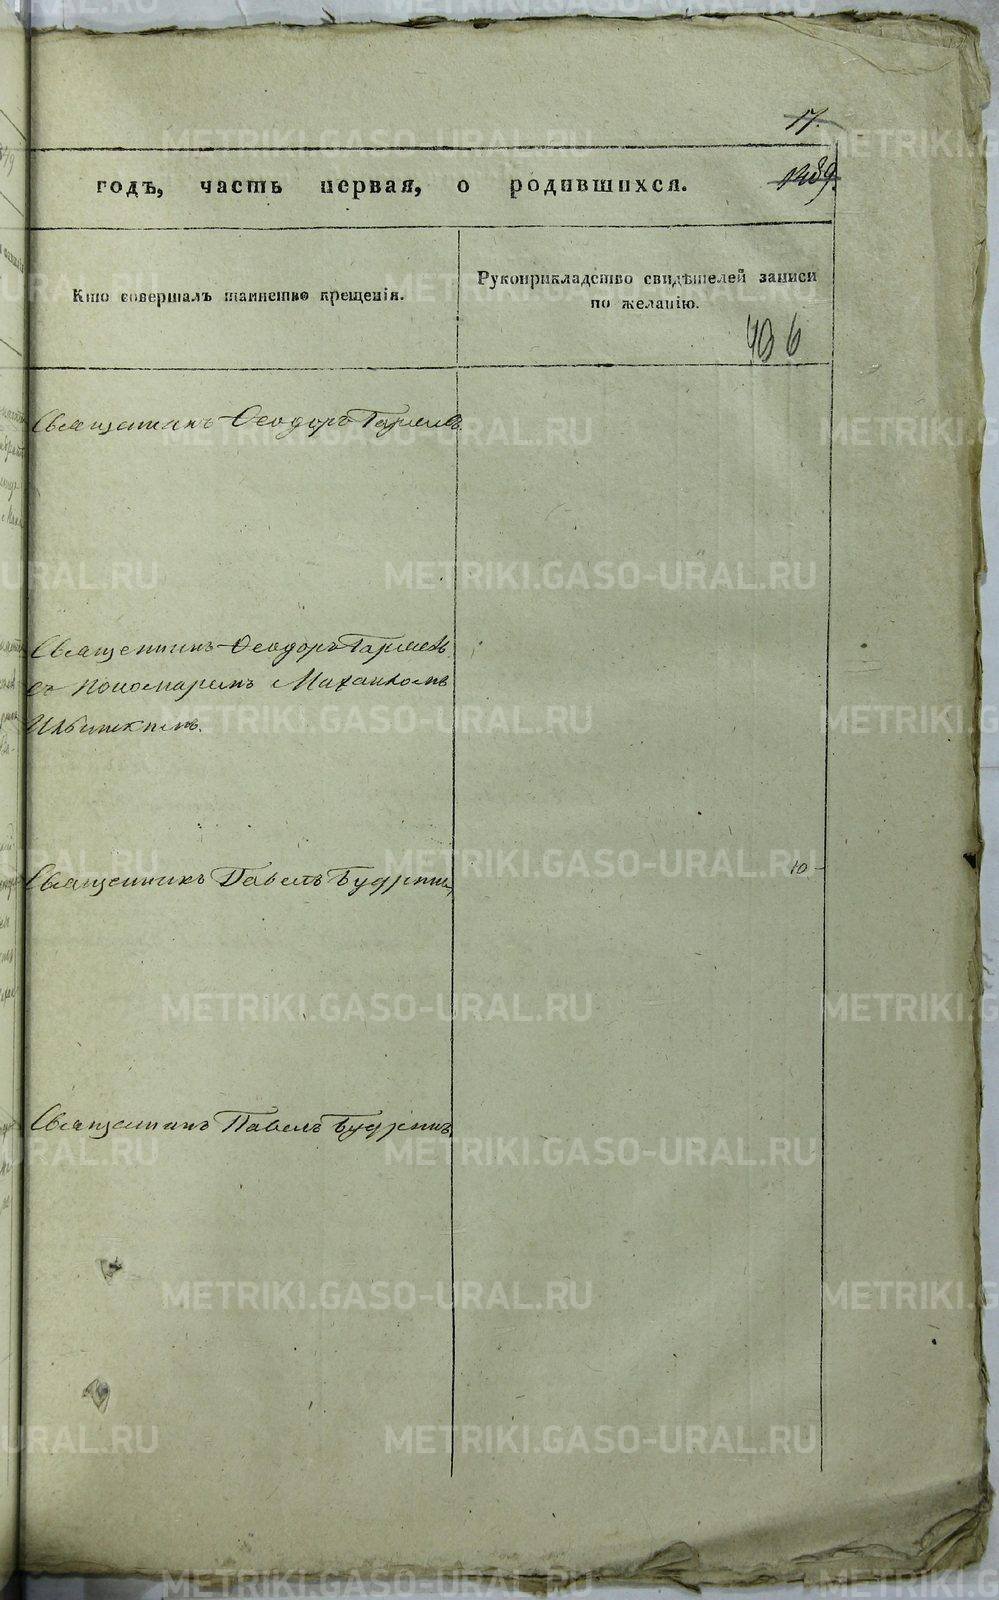 17.
годъ, часть первая, о родившихся.
1489.
Кто совершалъ таинство крещенія.
Рукоприкладство свидѣтелей записи
по желанію.
436
Священникъ Ѳеодоръ
Священникъ Ѳеодоръ
съ Пономаремъ Михаиломъ
Священникъ Павелъ Будринъ
Священникъ Павелъ Будринъ
10
METRIKI.GASO-URAL.RU